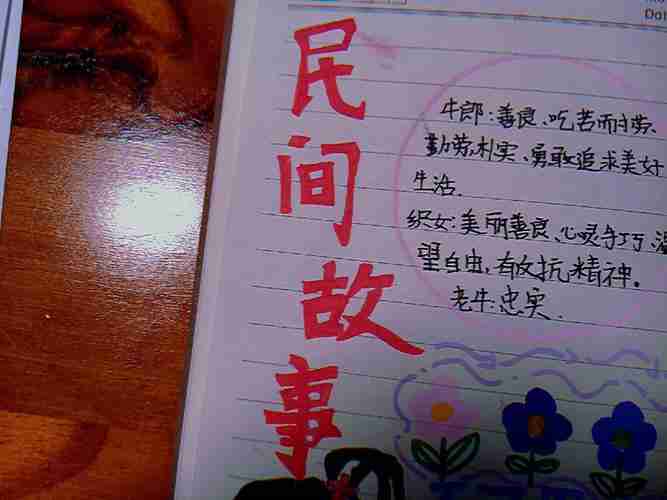 民间故事
牛郎:善良、吃苦耐劳、
勤劳朴实、勇敢追求美好
生活.
织女:美丽善良、心灵手巧、
望自由,有反抗精神。
老牛:忠实.